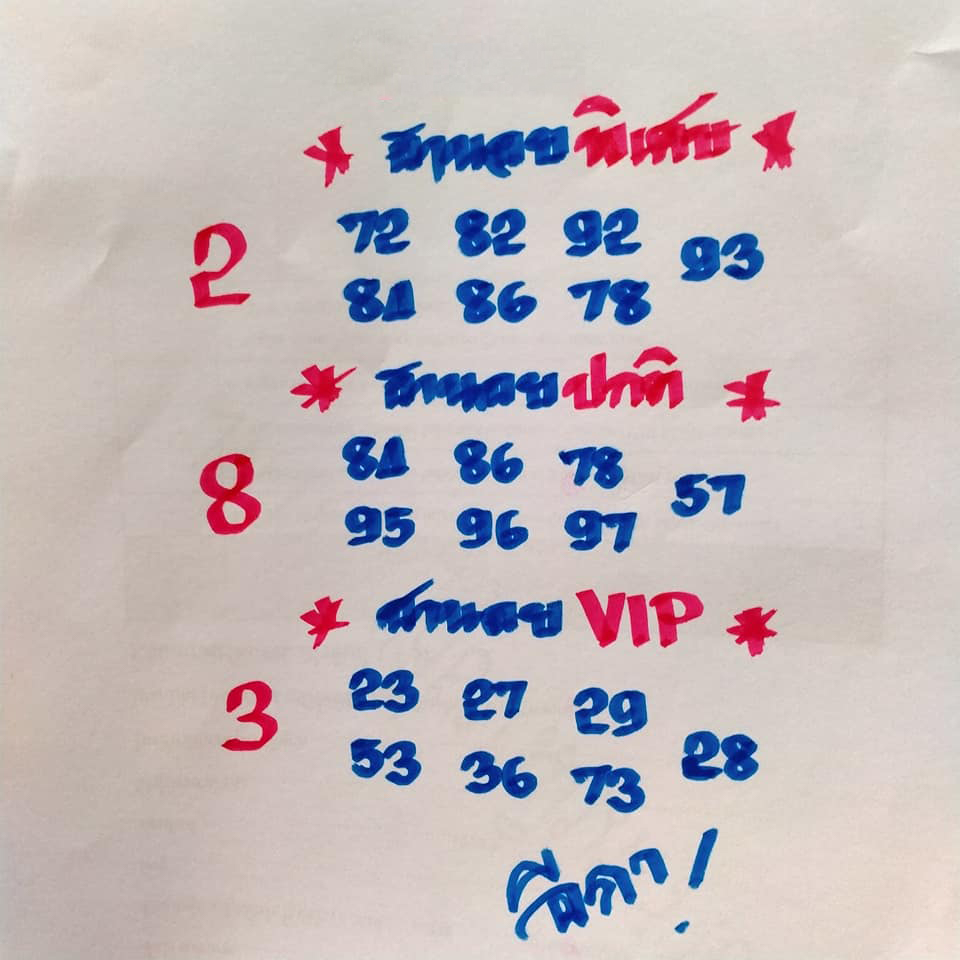 * ฮานอยพิเศษ *
2
72 82 92
93
84 86 78
* ฮานอยปกติ *
8
84 86 78
57
95 96 97
* ฮานอย VIP *
3
23 27 29
28
53 36 73